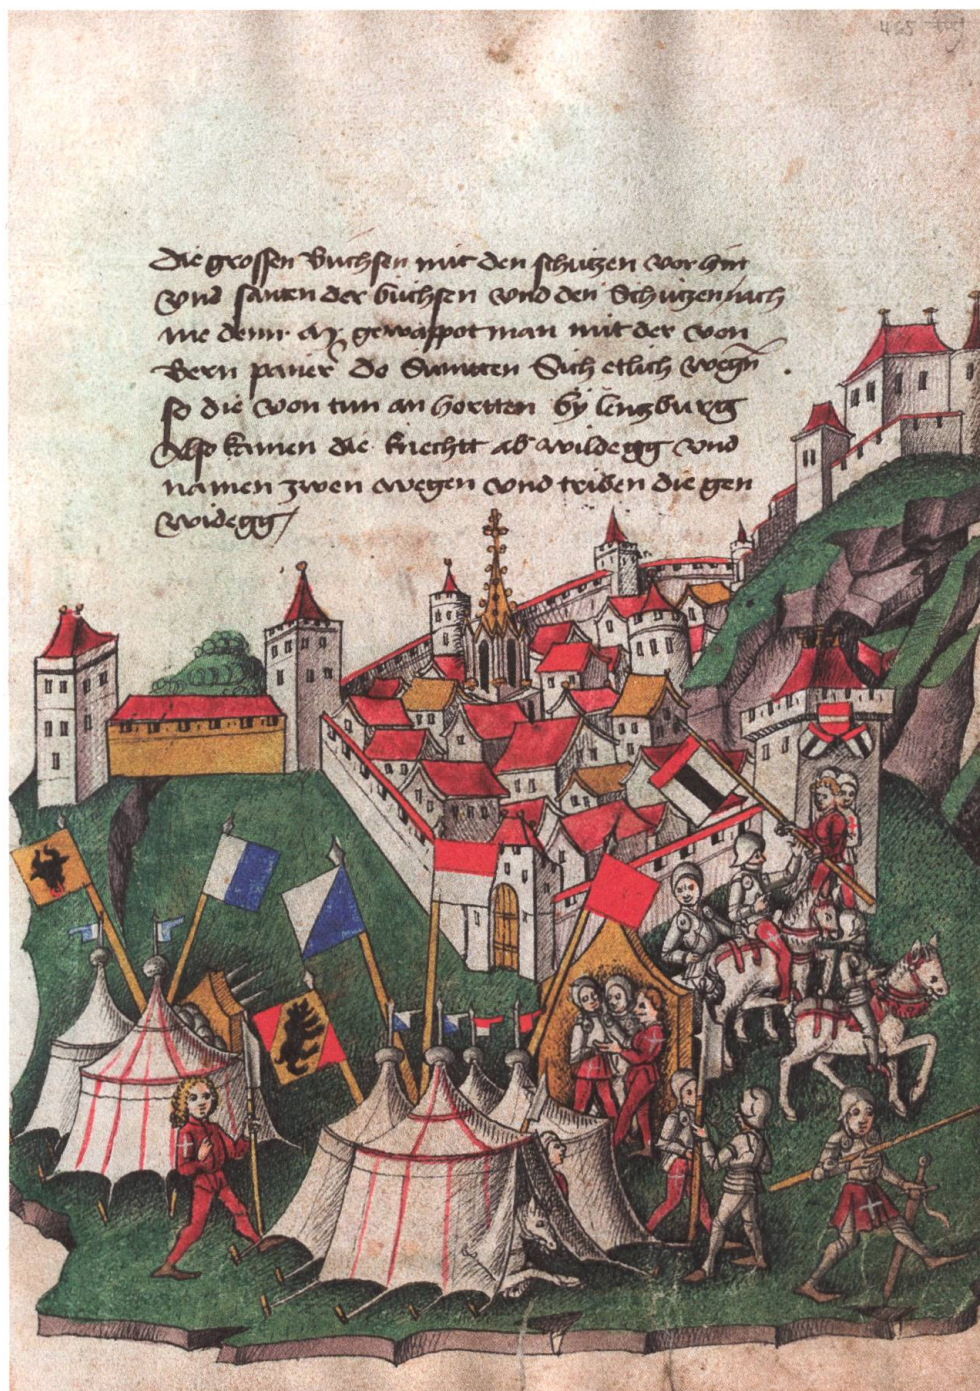 465
die grossen Buchsen mit den schützen vor hin
vnd santen der büchsen vnd den Schützen nach
me denn gewappot man mit der von
Bern paner do Sumtten Sich etlich wegn
so die von tun an hortten by lentzburg
Also kamen die knechtt ab wildegg vnd
namen zwen wegen vnd triben die gen
widegg